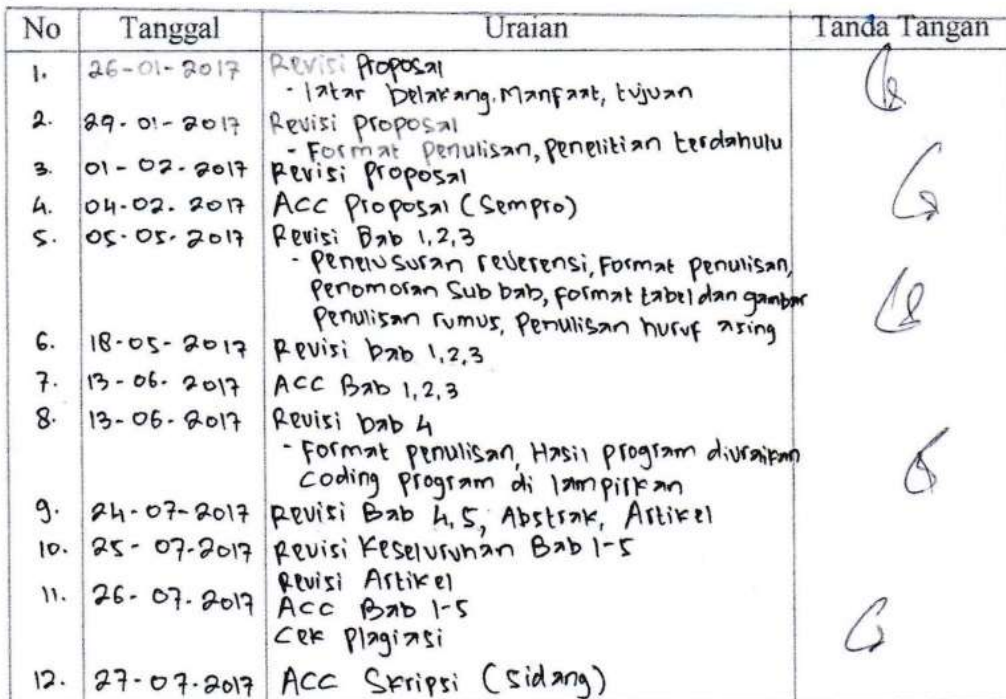 No Tanggal Uraian Tanda Tangan
1. 26-01-2017 Revisi Proposal
- latar belakang. Manfaat, tujuan
2. 29-01-2017 Revisi proposal
- Format penulisan, penelitian terdahulu
3. 01-02-2017 Revisi Proposal
4. 04-02-2017 ACC Proposal (Sempro)
5. 05-05-2017 Revisi Bab 1,2,3
- Penelusuran reverensi, Format penulisan,
Penomoran Sub bab, format tabel dan gambar
Penulisan rumus, Penulisan huruf asing
6. 18-05-2017 Revisi bab 1,2,3
7. 13-06-2017 ACC Bab 1,2,3
8. 13-06-2017 Revisi bab 4
- Format penulisan, Hasil program diuraikan
Coding program di lampirkan
9. 24-07-2017 Revisi Bab 4,5, Abstrak, Artikel
10. 25-07-2017 Revisi Keseluruhan Bab 1-5
Revisi Artikel
11. 26-07-2017 ACC Bab 1-5
Cek Plagiasi
12. 27-07-2017 ACC Skripsi (Sidang)